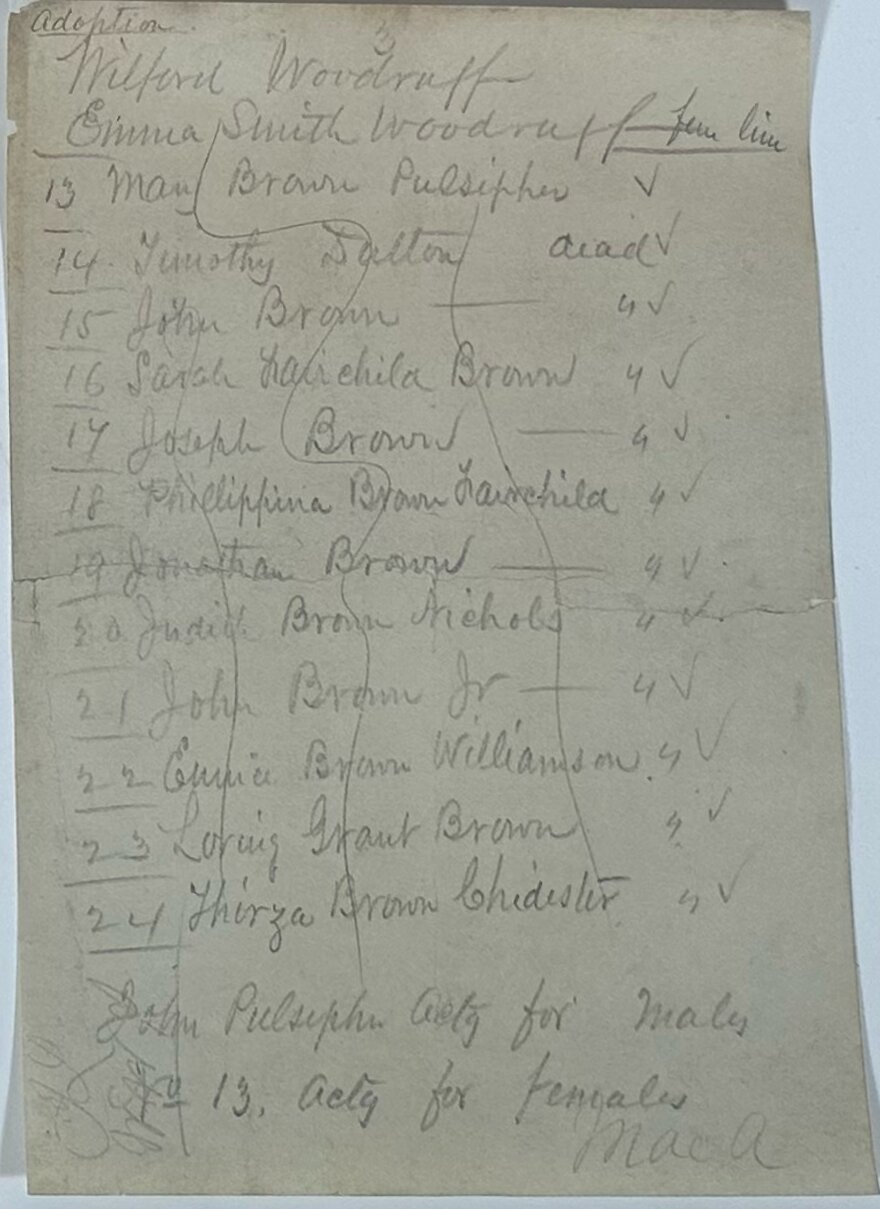 Adoption
3
Wilford Woodruff
Emma Smith Woodruff
13 Mary Brown Pulsipher ✓
14 Timothy Dalton dead ✓
15 John Brown — " ✓
16 Sarah Fairchild Brown " ✓
17 Joseph Brown — " ✓
18 Phillippina Brown Fairchild " ✓
19 Jonathan Brown — " ✓
20 Judith Brown Nichols " ✓
21 John Brown Jr — " ✓
22 Eunice Brown Williamson " ✓
23 Loring Grant Brown " ✓
24 Thirza Brown Chidester " ✓
John Pulsipher Actg for Males
No 13. Actg for Females